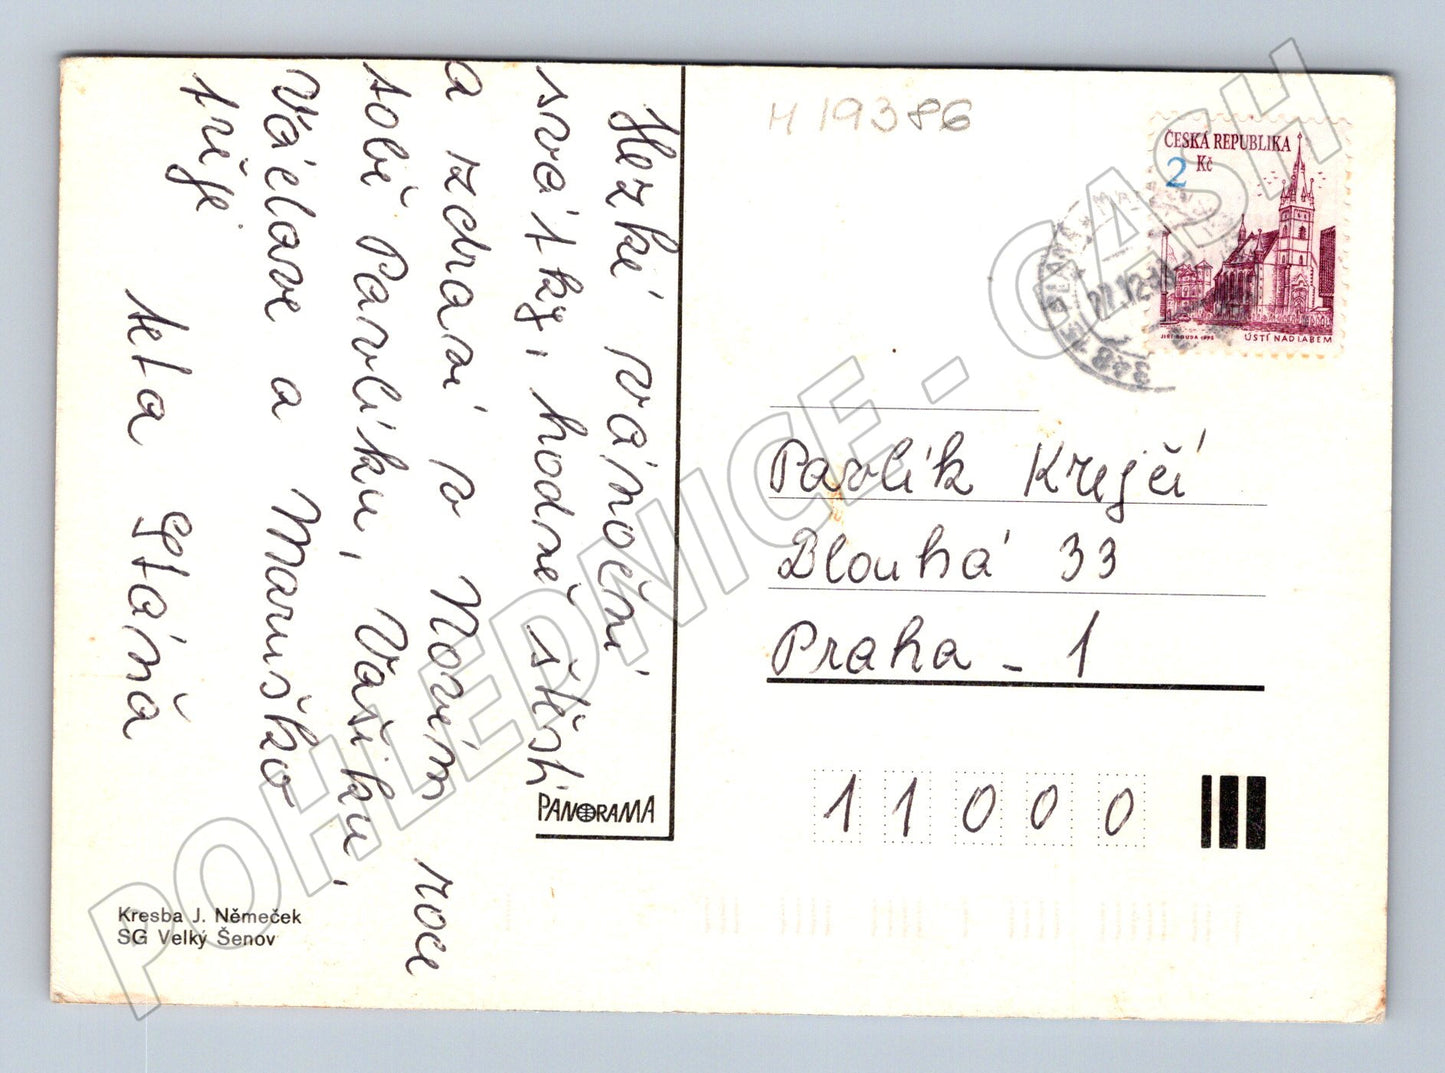 Hezké vánoční
svátky, hodně štěstí
a zdraví v Novém roce
tobě Pavlíku, Vašíku,
Václave a Maruško
přeje
teta Stáňa
PANORAMA
Kresba J. Němeček
SG Velký Šenov
H 19386
ČESKÁ REPUBLIKA
2 Kč
JIŘÍ BOUDA 1993
ÚSTÍ NAD LABEM
Pavlík Krejčí
Dlouhá 33
Praha - 1
11000
POHLEDNICE - CASH